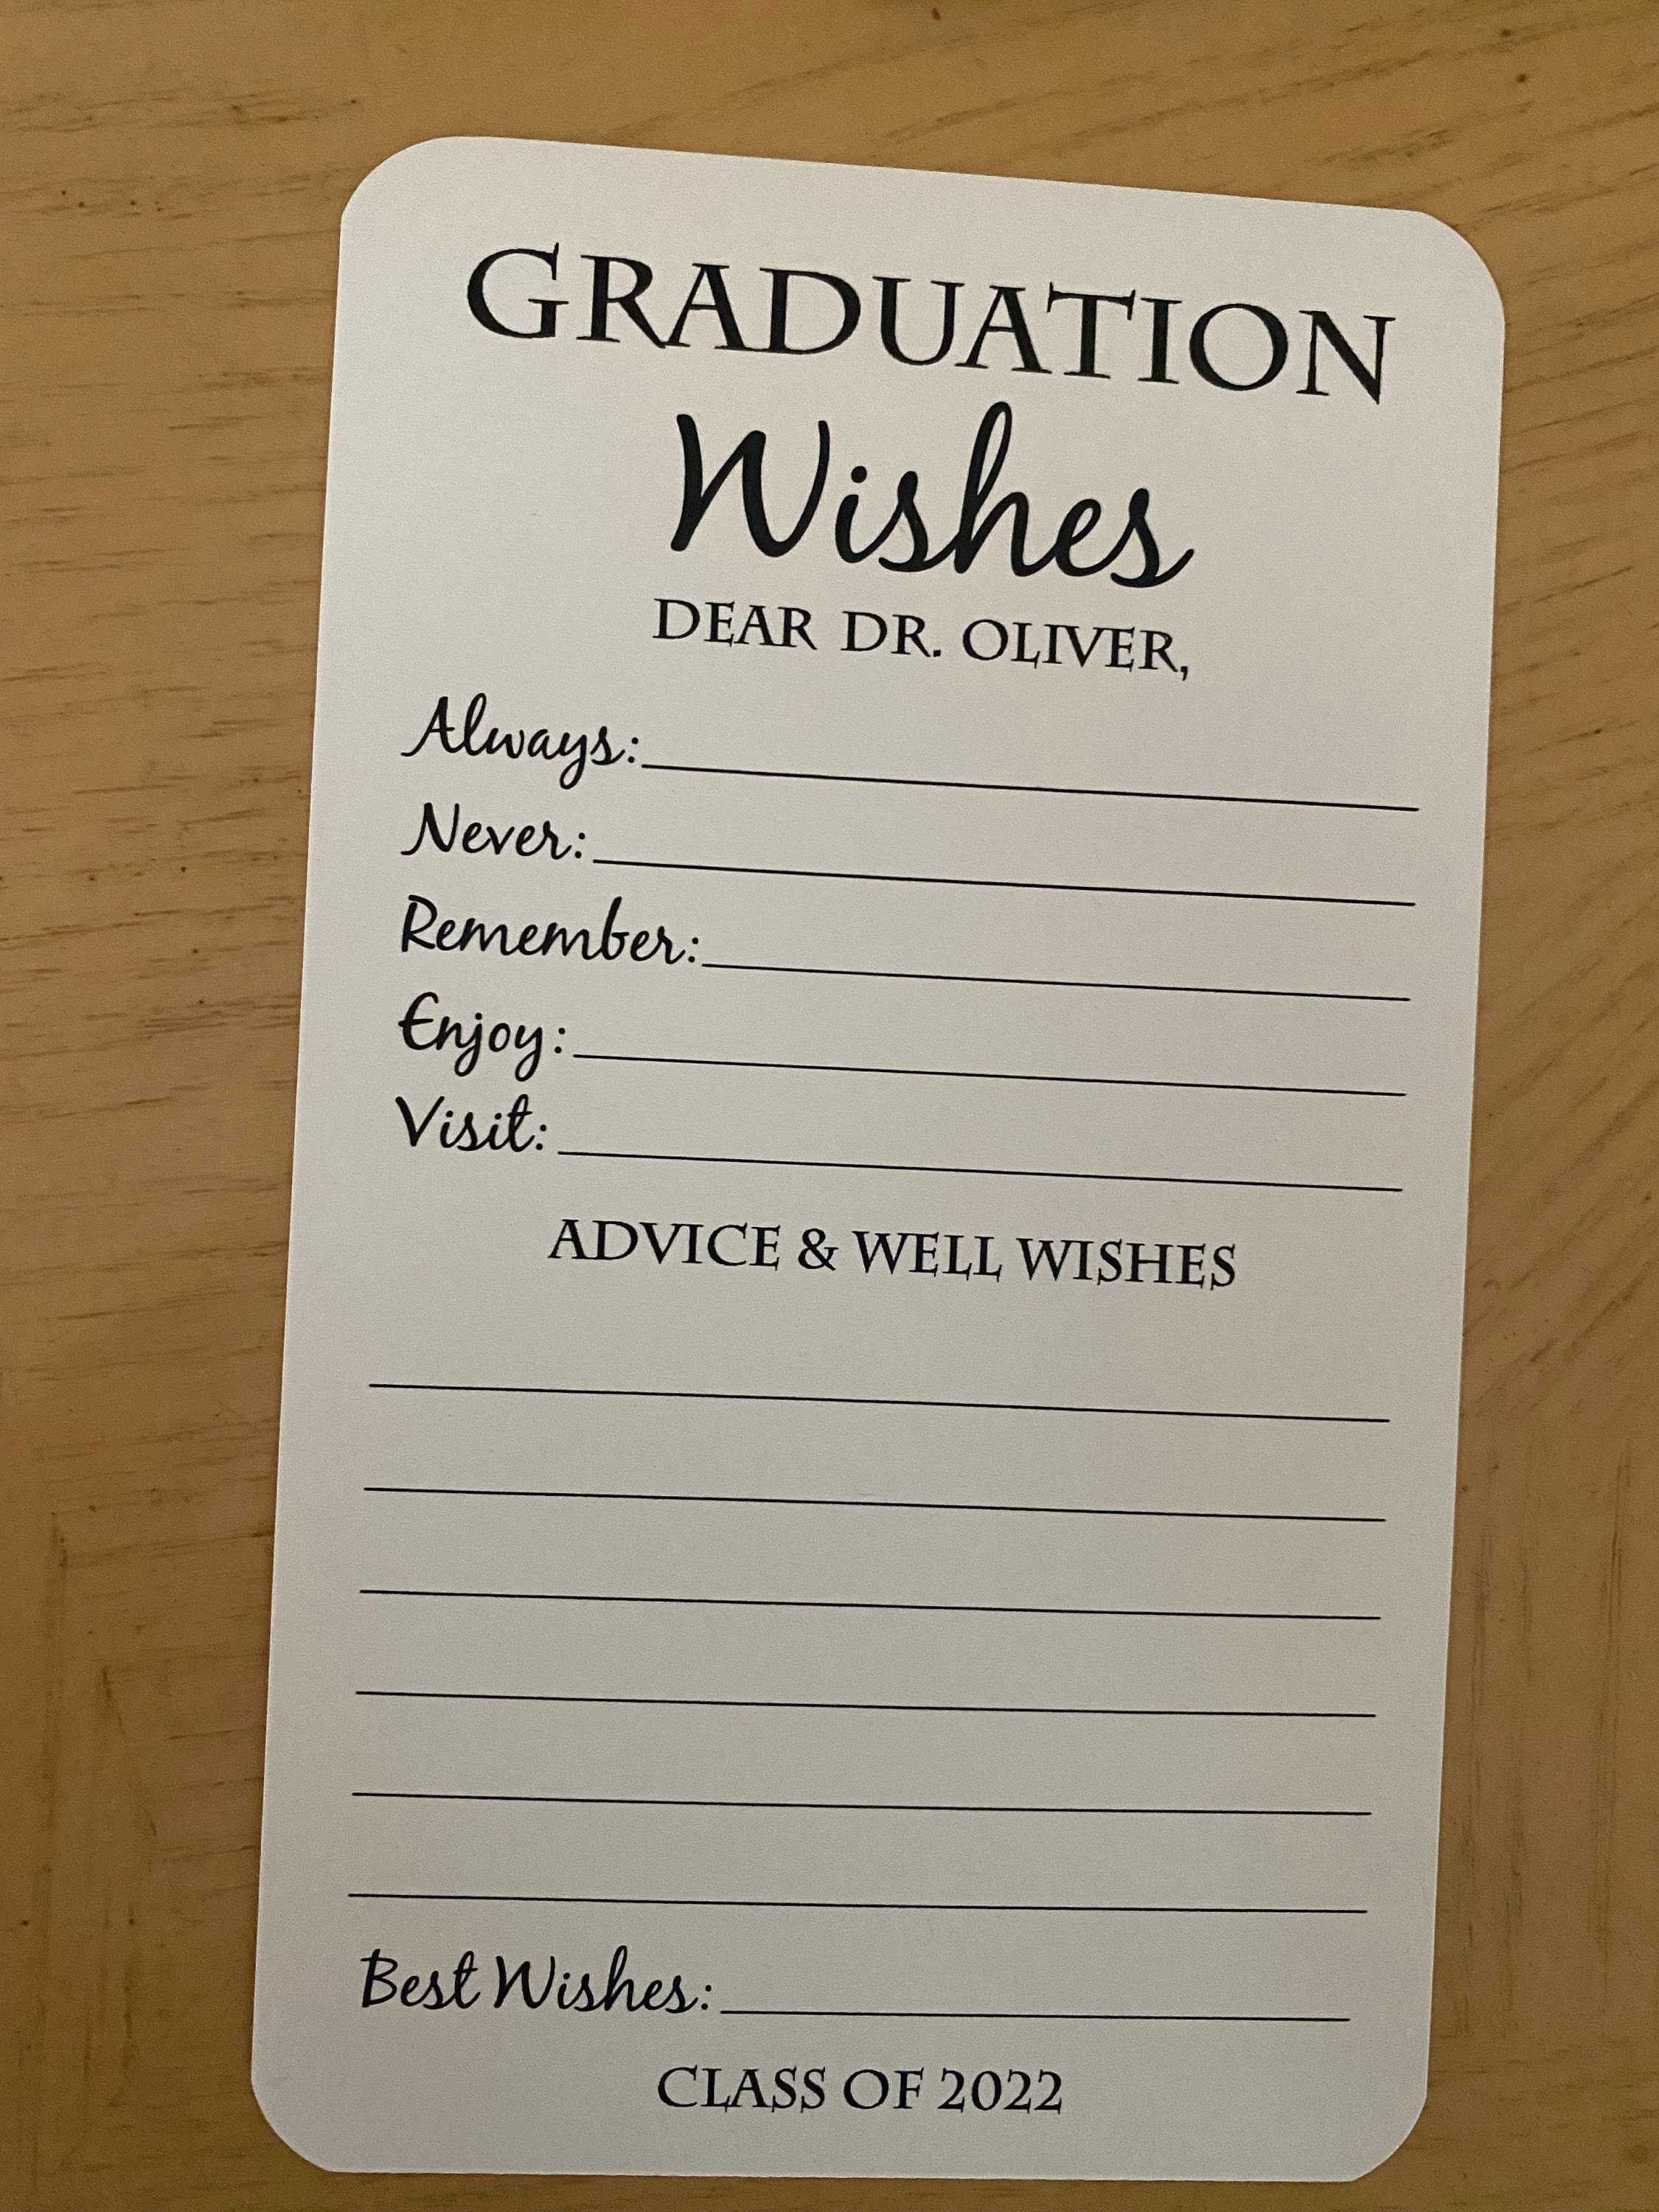 GRADUATION
Wishes
DEAR DR. OLIVER,
Always:
Never:
Remember:
Enjoy:
Visit:
ADVICE & WELL WISHES
Best Wishes:
CLASS OF 2022